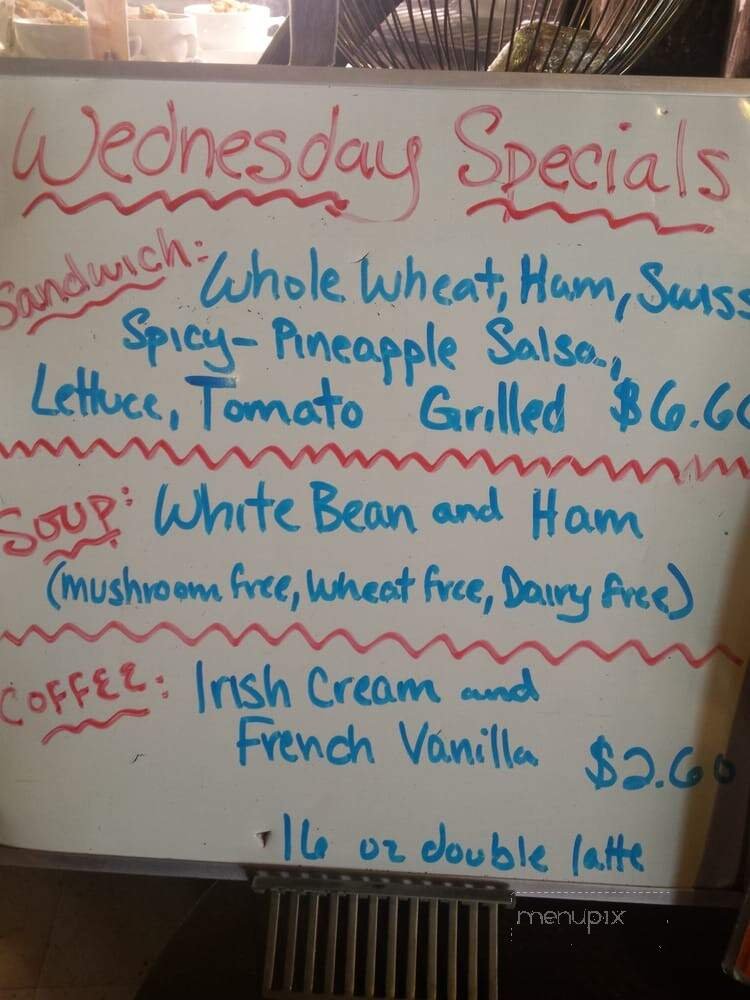 Wednesday Specials
Sandwich: Whole Wheat, Ham, Swiss
Spicy-Pineapple Salsa,
Lettuce, Tomato Grilled $6.60
Soup: White Bean and Ham
(mushroom free, Wheat free, Dairy free)
COFFEE: Irish Cream and
French Vanilla $2.60
16 oz double latte
menupix